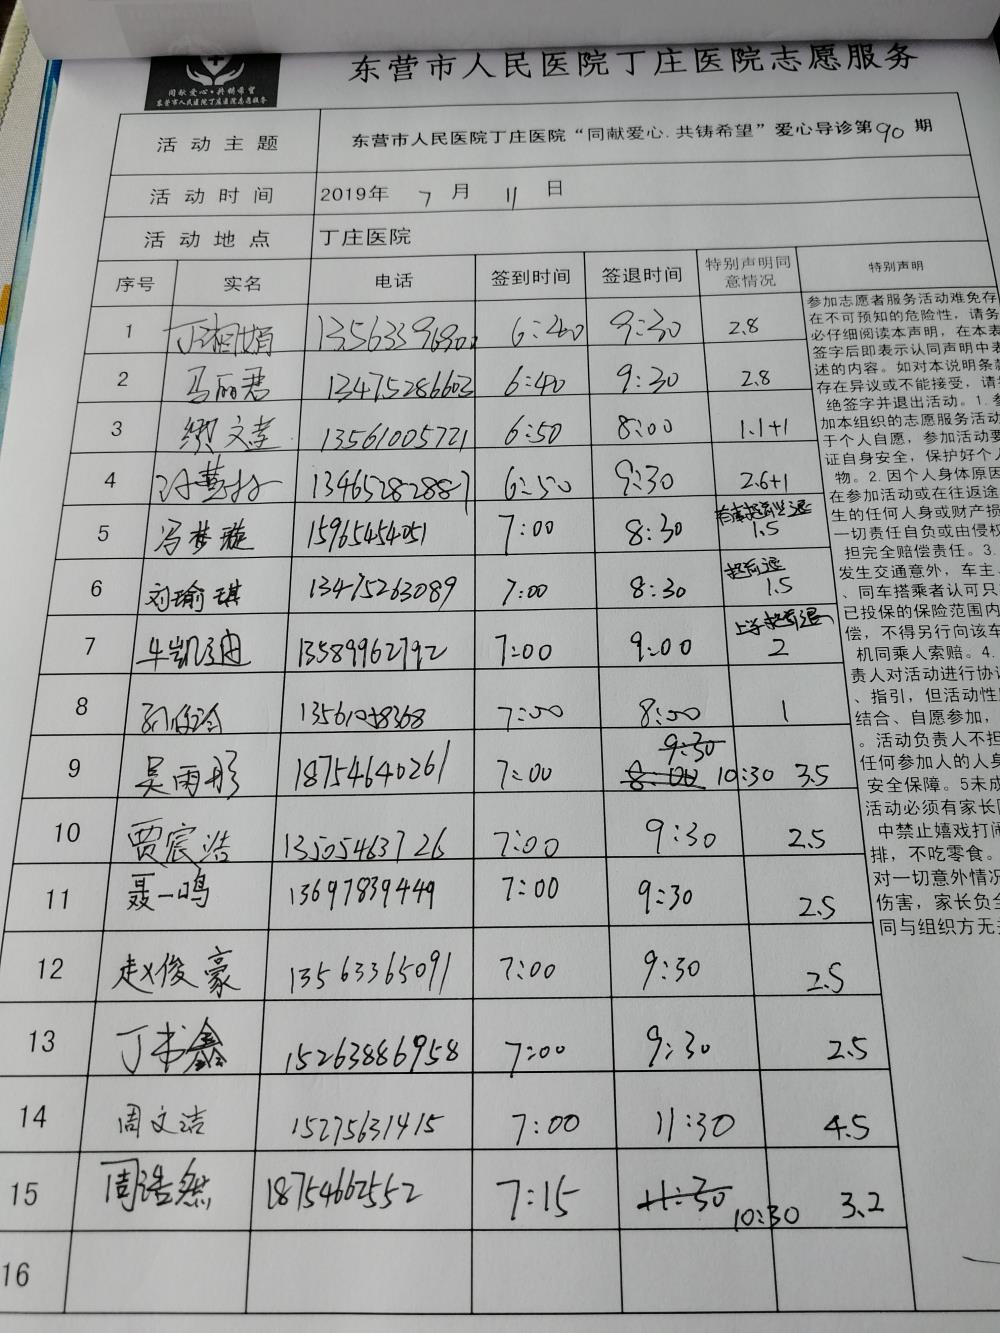 同献爱心·共铸希望
东营市人民医院丁庄医院志愿服务
东营市人民医院丁庄医院志愿服务
活动主题 东营市人民医院丁庄医院“同献爱心.共铸希望”爱心导诊第90期
活动时间 2019年 7 月 11 日
活动地点 丁庄医院
序号 实名 电话 签到时间 签退时间 特别声明同意情况 特别声明
1 丁相娟 6:40 9:30 2.8
2 马丽君 13475286603 6:40 9:30 2.8
3 文 13561005721 6:50 8:00 1.1+1
4 13465282887 6:50 9:30 2.6+1
5 冯梦璇 15965454051 7:00 8:30 1.5
6 刘瑜琪 13475263089 7:00 8:30 提前退 1.5
7 牛凯迪 13589962792 7:00 9:00 2
8 7:00 8:00 1
9 吴雨彤 18754640261 7:00 8:00 9:30 10:30 3.5
10 贾宸浩 13505463726 7:00 9:30 2.5
11 聂一鸣 13697839449 7:00 9:30 2.5
12 赵俊豪 13563365091 7:00 9:30 2.5
13 丁书鑫 15263886958 7:00 9:30 2.5
14 周文洁 15275631415 7:00 11:30 4.5
15 周浩然 18754662552 7:15 11:30 10:30 3.2
16
参加志愿者服务活动难免存
在不可预知的危险性，请务
必仔细阅读本声明，在本表
签字后即表示认同声明中表
述的内容。如对本说明条款
存在异议或不能接受，请
绝签字并退出活动。1.参
加本组织的志愿服务活动
于个人自愿，参加活动要
证自身安全，保护好个人
物。2.因个人身体原因
在参加活动或在往返途
生的任何人身或财产损
一切责任自负或由侵权
担完全赔偿责任。3.
发生交通意外，车主、
、同车搭乘者认可只
已投保的保险范围内
偿，不得另行向该车
机同乘人索赔。4.
责人对活动进行协
、指引，但活动性
结合、自愿参加，
。活动负责人不担
任何参加人的人身
安全保障。5未成
活动必须有家长
中禁止嬉戏打闹
排，不吃零食。
对一切意外情况
伤害，家长负全
同与组织方无